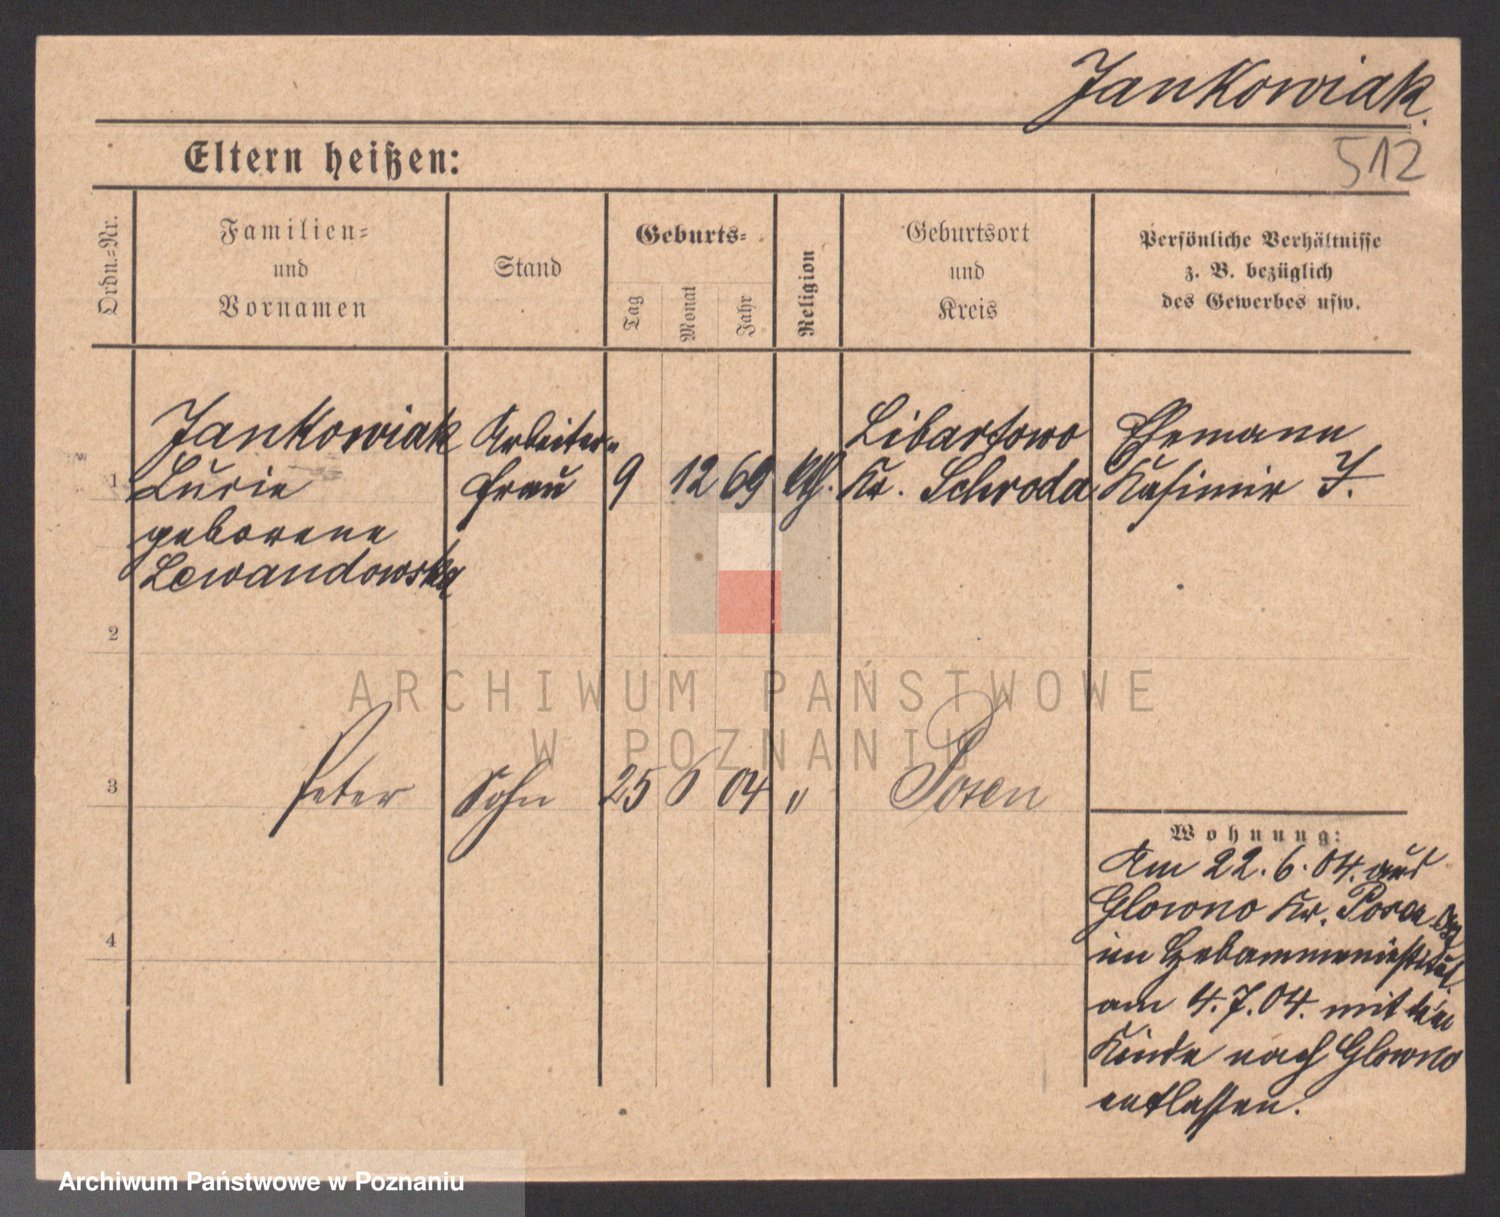 Jankowiak.
512
Eltern heißen:
Ordn.-Nr.
Familien-
und
Vornamen
Stand
Geburts-
Tag
Monat
Jahr
Religion
Geburtsort
und
Kreis
Persönliche Verhältnisse
z. B. bezüglich
des Gewerbes usw.
1
Jankowiak
Lucie
geborene
Lewandowska
Arbeiter-
frau
9
12
69
kth.
Libartowo
Kr. Schroda
Ehemann
Kasimir J.
2
3
Peter
Sohn
25
6
04
"
Posen
Wohnung:
Am 22. 6. 04. aus
Glowno Kr. Posen Ost
im Hebammeninstitut
am 4. 7. 04. mit dem
Kinde nach Glowno
entlassen.
4
ARCHIWUM PAŃSTWOWE
W POZNANIU
Archiwum Państwowe w Poznaniu